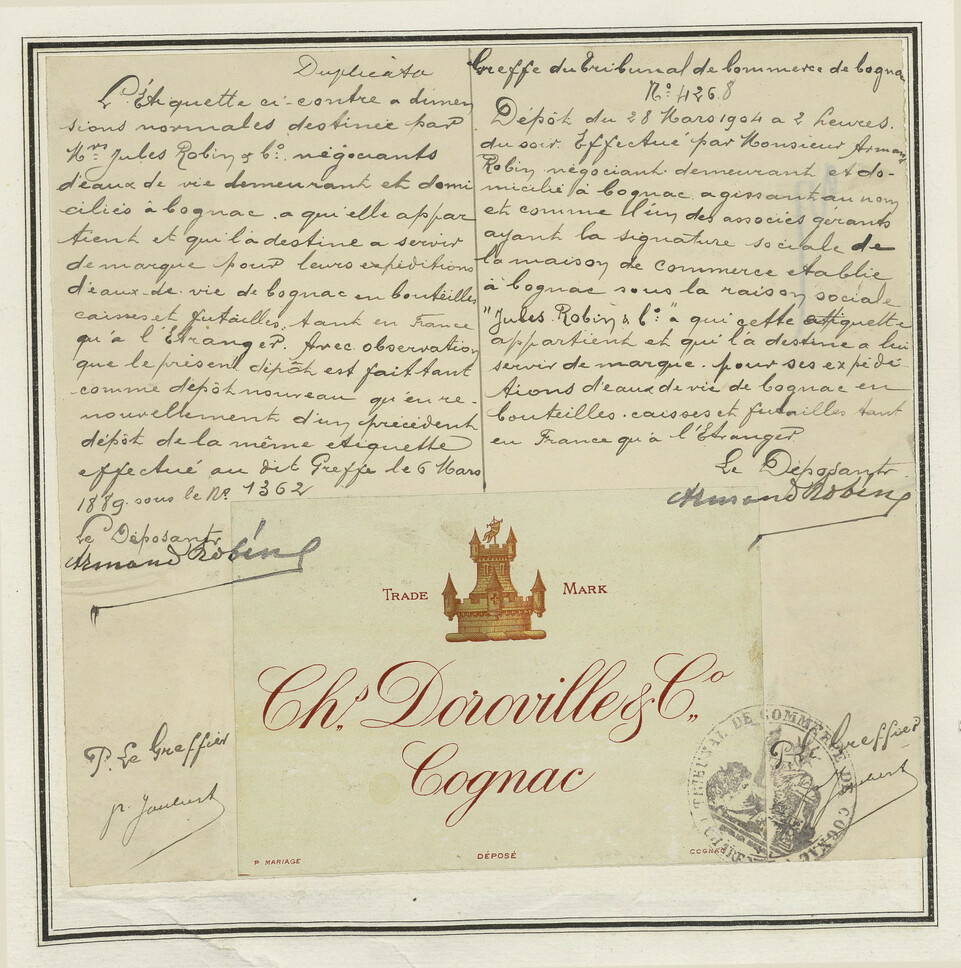 Duplicata
L'Étiquette ci-contre a dimen
sions normales destinée par
Mrs Jules Robin & Co. négociants
d'eaux de vie demeurant et domi
ciliés à Cognac. a qui elle appar
tient et qui la destine a servir
de marque pour leurs expéditions
d'eaux-de-vie de Cognac en bouteilles
caisses et futailles, tant en France
qu'à l'Etranger. Avec observation
que le présent dépôt est fait tant
comme dépôt nouveau qu'en re-
nouvellement d'un précédent
dépôt de la même etiquette
effectué au dit Greffe le 6 Mars
1889. sous le No. 1362
Le Déposant
Armand Robin
P. Le Greffier
p. Joubert
Greffe du Tribunal de Commerce de Cognac
No. 4268
Dépôt du 28 Mars 1904 a 2 heures.
du soir. Effectué par Monsieur Armand
Robin, négociant demeurant et do-
micilié à Cognac agissant au nom
et comme l'un des associés gérants
ayant la signature sociale de
la maison de commerce etablie
à Cognac sous la raison sociale
"Jules Robin & Co." a qui cette etiquette
appartient et qui la destine a lui
servir de marque. pour ses expédi-
tions d'eaux de vie de Cognac en
bouteilles. caisses et futailles tant
en France qu'à l'Etranger
Le Déposant
Armand Robin
TRADE MARK
Chs. Doroville & Co.
Cognac
P. MARIAGE
DÉPOSÉ
COGNAC
P. Le Greffier
Joubert
TRIBUNAL DE COMMERCE DE COGNAC